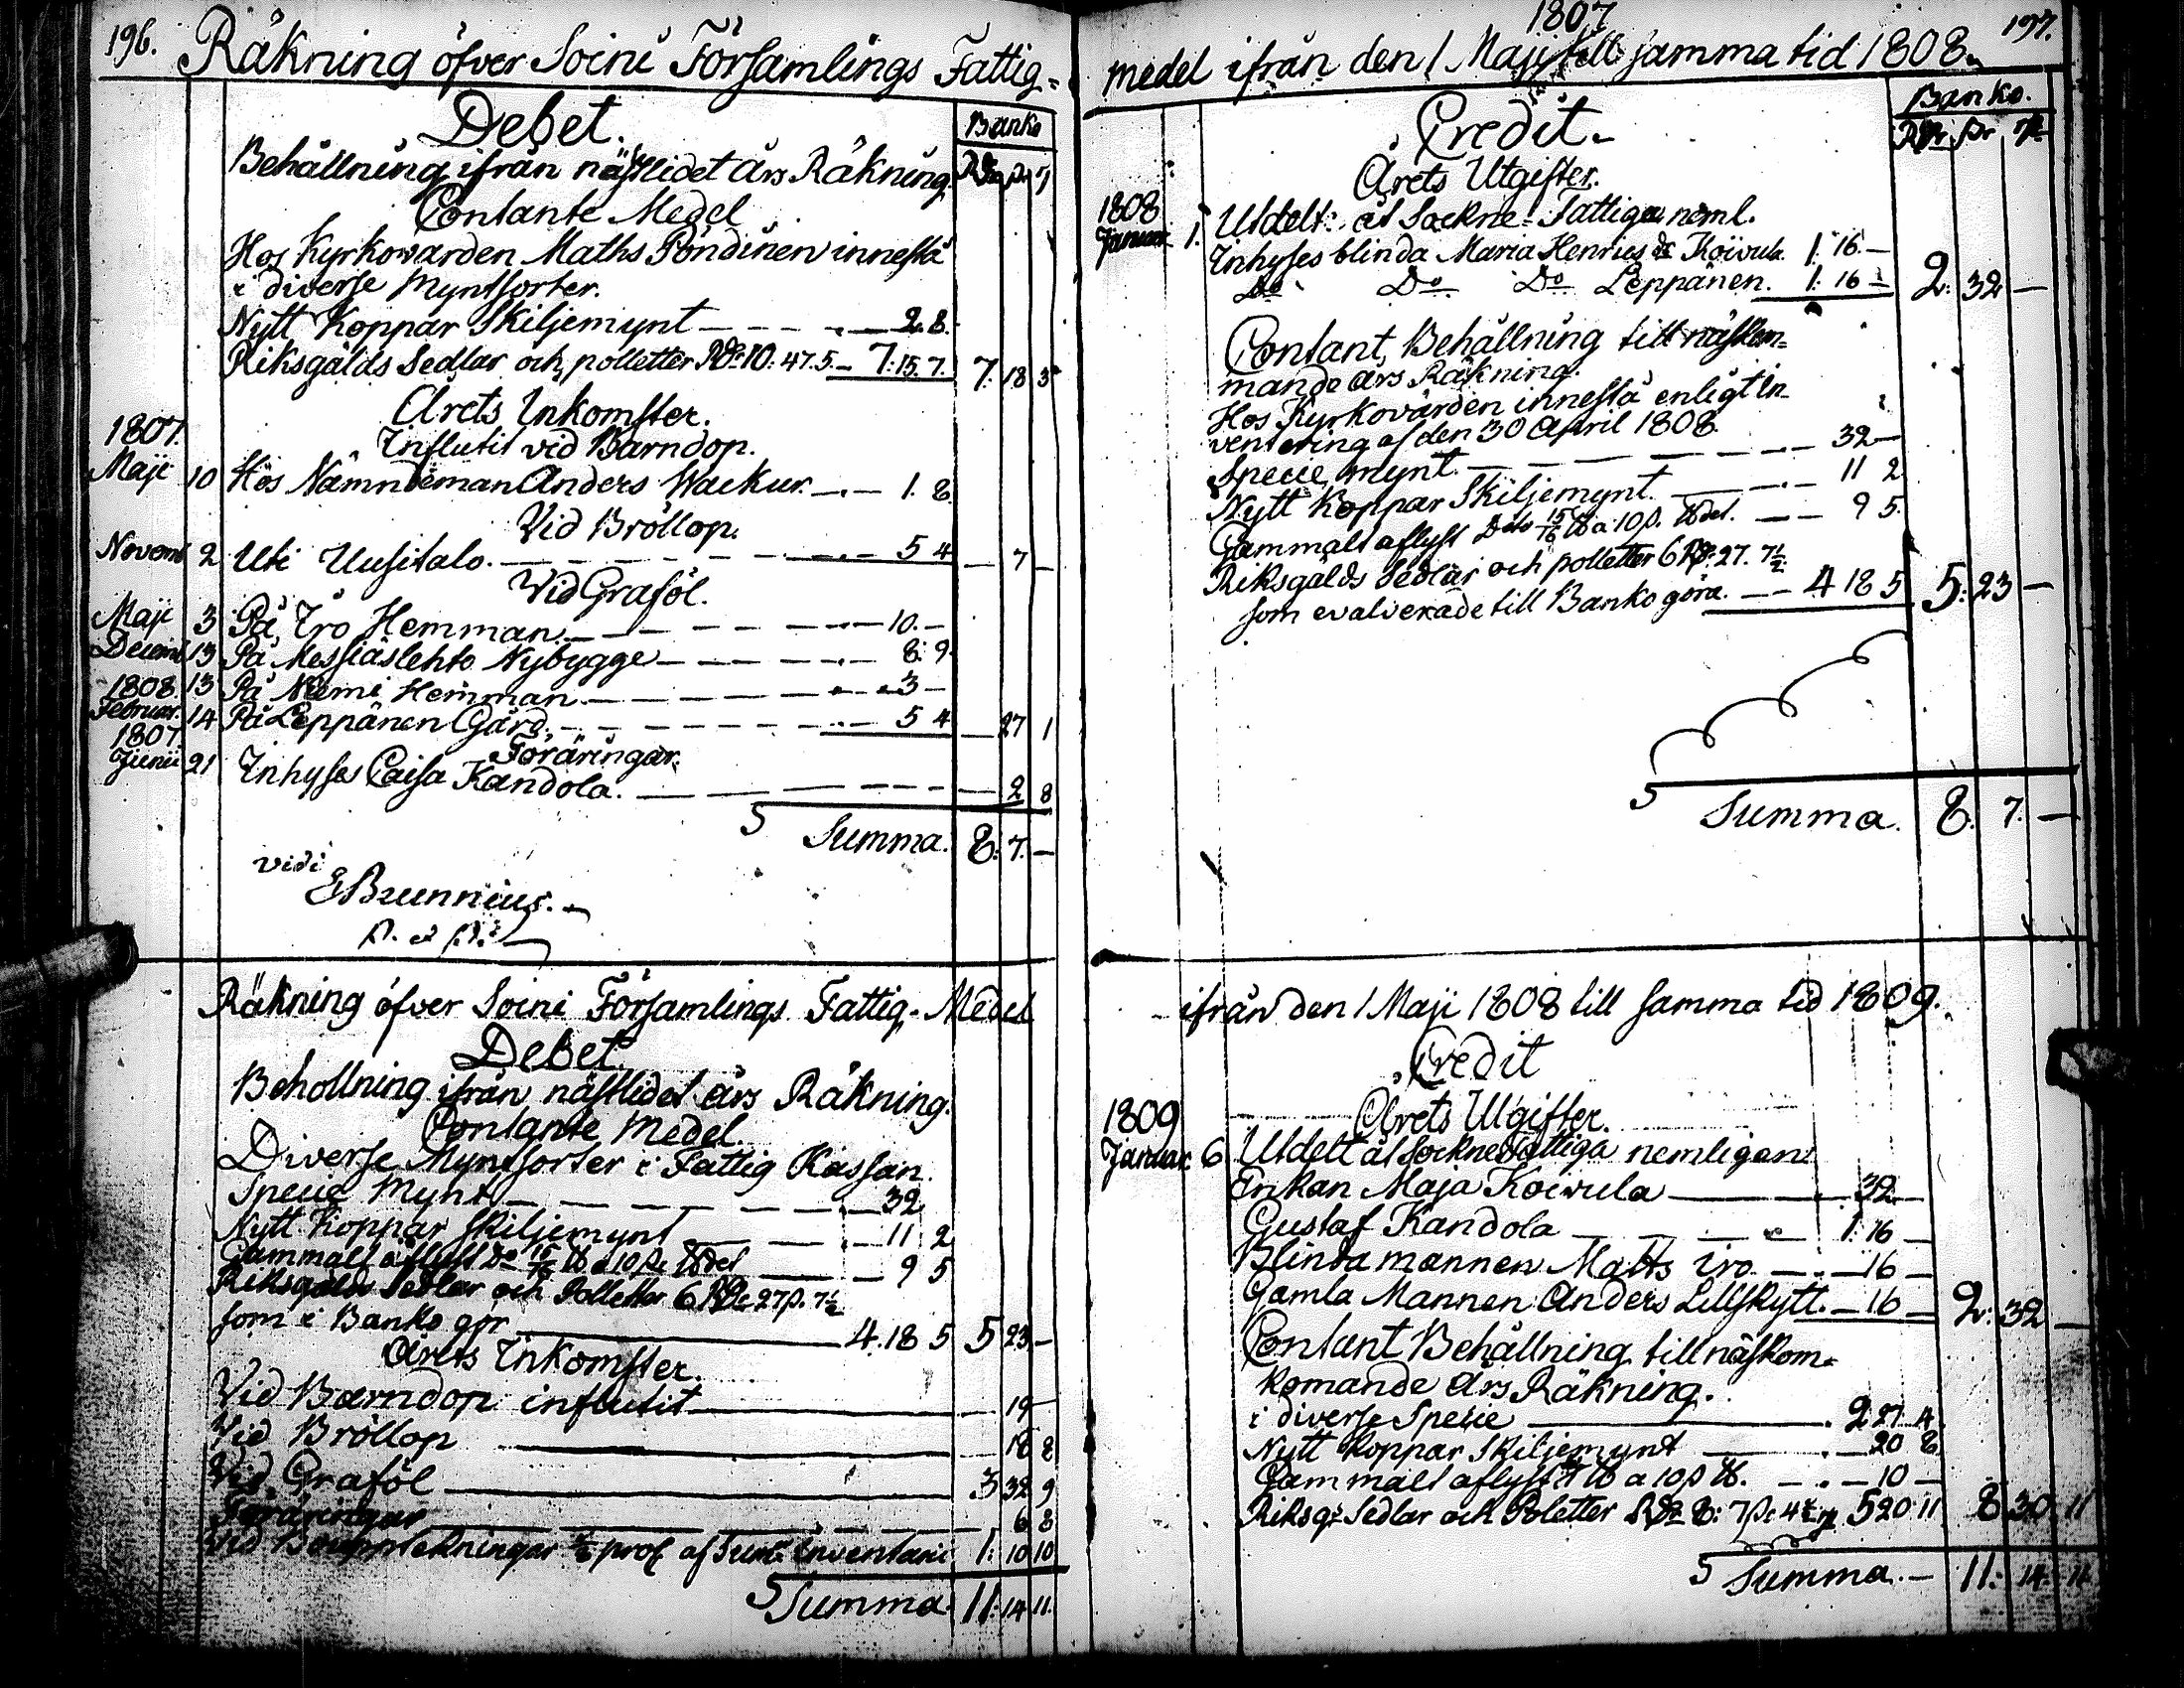 196.
Räkning öfver Soini Församlings Fattig-
Debet.
Banko
Behållning ifrån nästlidet års Räkning
Contante Medel
Hos Kyrkowarden Maths Pöndinen innestå
i diverse Myntsorter.
Nytt Koppar Skiljemynt — 2. 8.
Riksgälds Sedlar och polletter Rdr 10. 47. 5. — 7: 15. 7. 7: 18 3
Årets Inkomster.
1807.
Influtit vid Barndop.
Maji 10 Hos Nämndeman Anders Wackur. — 1. 8
Vid Bröllop.
Novemb 2 Uti Uusitalo. — 5 4 — 7 —
Vid Graföl.
Maji 3 På Iro Hemman. — 10. —
Decemb 13 På Messiäslehto Nybygge — 8. 9
1808. 13 På Niemi Hemman — 3 —
Februar. 14 På Leppänen Gård. — 5 4 — 27 1
1807.
Föräringar.
Junii 21 Inhyses Caisa Kandola. — 2 8
Summa. 8: 7. —
vidi
E Brunnius. —
Räkning öfver Soini Församlings Fattig-Medel
Debet.
Behollning ifrån nästlidet års Räkning.
Contante Medel.
Diverse Myntsorter i Fattig Kassan.
Specie Mynt — 32
Nytt Koppar Skiljemynt — 11 2
Gammalt aflyst Do 15/16 ℔ a 10 s. ℔det — 9 5
Riksgälds Sedlar och Polletter 6 Rdr 27 s. 7½
som i Banko gör — 4. 18 5 5 23 —
Årets Inkomster.
Vid Barndop influtit — 19 —
Vid Bröllop — 18 8
Vid Graföl — 3 32 9
Föräringar — 6 8
Vid Bouppteckningar prof af Inventarii 1: 10 10
Summa 11: 14 11.
1807
197.
medel ifrån den 1 Maji till samma tid 1808.
Credit.
Banko.
Årets Utgifter.
1808
Januar. 1. Utdelt: åt Sockne-Fattiga neml.
Inhyses blinda Maria Henrics dr Koivula 1: 16. —
Do Do Do Leppänen. 1: 16 — 2: 32 —
Contant, Behållning till nästkom-
mande års Räkning.
Hos Kyrkovärden innestå enligt In-
ventering af den 30 April 1808.
Specie mynt. — 32 —
Nytt Koppar Skiljemynt. — 11 2
Gammalt aflyst Dito 15/16 ℔ a 10 s. ℔det. — 9 5.
Riksgälds Sedlar och polletter 6 Rdr: 27. 7½.
som evalverade till Banko göra. — 4 18 5 5: 23 —
Summa. 8. 7. —
ifrån den 1 Maji 1808 till samma tid 1809.
Credit
1809
Årets Utgifter.
Januar. 6. Utdelt åt Sockne Fattiga nemligen:
Enkan Maja Koivula — 32 —
Gustaf Kandola — 1: 16 —
Blinda mannen Matts Iro — 16 —
Gamla Mannen Anders Lillskytt. — 16 — 2: 32 —
Contant Behållning till näskom-
komande års Räkning.
i diverse Specie — 2 27 4
Nytt Koppar Skiljemynt — 20 8
Gammalt aflyst ℔ a 10 s ℔. — 10 —
Riksg: Sedlar och Poletter Rdr 8: 7 s. 4½ 5 20 11 8 30 11
Summa. — 11: 14: 11